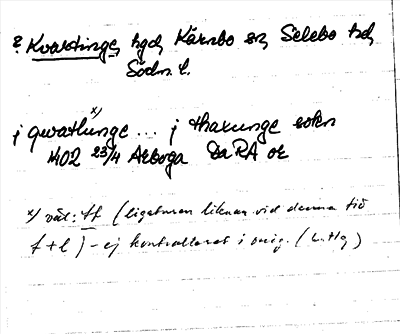 ? Kvastinge, hgd, Kärnbo sn, Selebo hd,
Södn. l.
x)
j qwatlunge ... j thaxunge sokn
1402 23/4 Arboga DaRA or
x) väl: tf (ligaturen liknar vid denna tid
f + l) - ej kontrollerat i orig. (L. Hg)